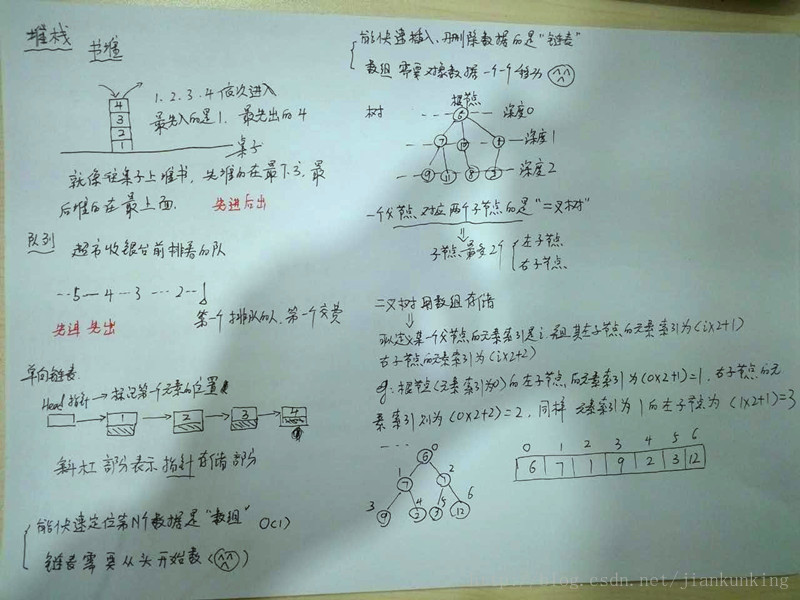 堆栈
书堆
4
3
2
1
1.2.3.4 依次进入
最先入的是1. 最先出的4
桌子
就像往桌子上堆书,先堆的在最下方,最
后堆的在最上面.
先进后出
队列
超市收银台前排着的队
--5—4--3---2--1
先进先出
第一个排队的人,第一个交费
单向链表
Head指针→标记第一个元素的位置
1
2
3
4
斜杠部分表示指针存储部分
能快速定位第N个数据是"数组" O(1)
链表需要从头开始数
能快速插入、删除数据的是"链表"
数组需要对象数据一个一个移动
树
根节点
6
深度0
7
10
5
深度1
9
11
8
3
深度2
一个父节点对应两个子节点的是"二叉树"
子节点最多2个
左子节点
右子节点
二叉树用数组存储
假定义某一个父节点的元素索引是i,其左子节点的元素索引为(ix2+1)
右子节点的元素索引为(ix2+2)
eg:根节点(元素索引为0)的左子节点的元素索引为(0x2+1)=1.右子节点的元
素索引则为(0x2+2)=2,同样 元素索引为1的左子节点为(1x2+1)=3
----
0
6
1
7
2
3
9
4
2
5
3
6
12
0 1 2 3 4 5 6
6 7 1 9 2 3 12
blog.csdn.net/jiankunking